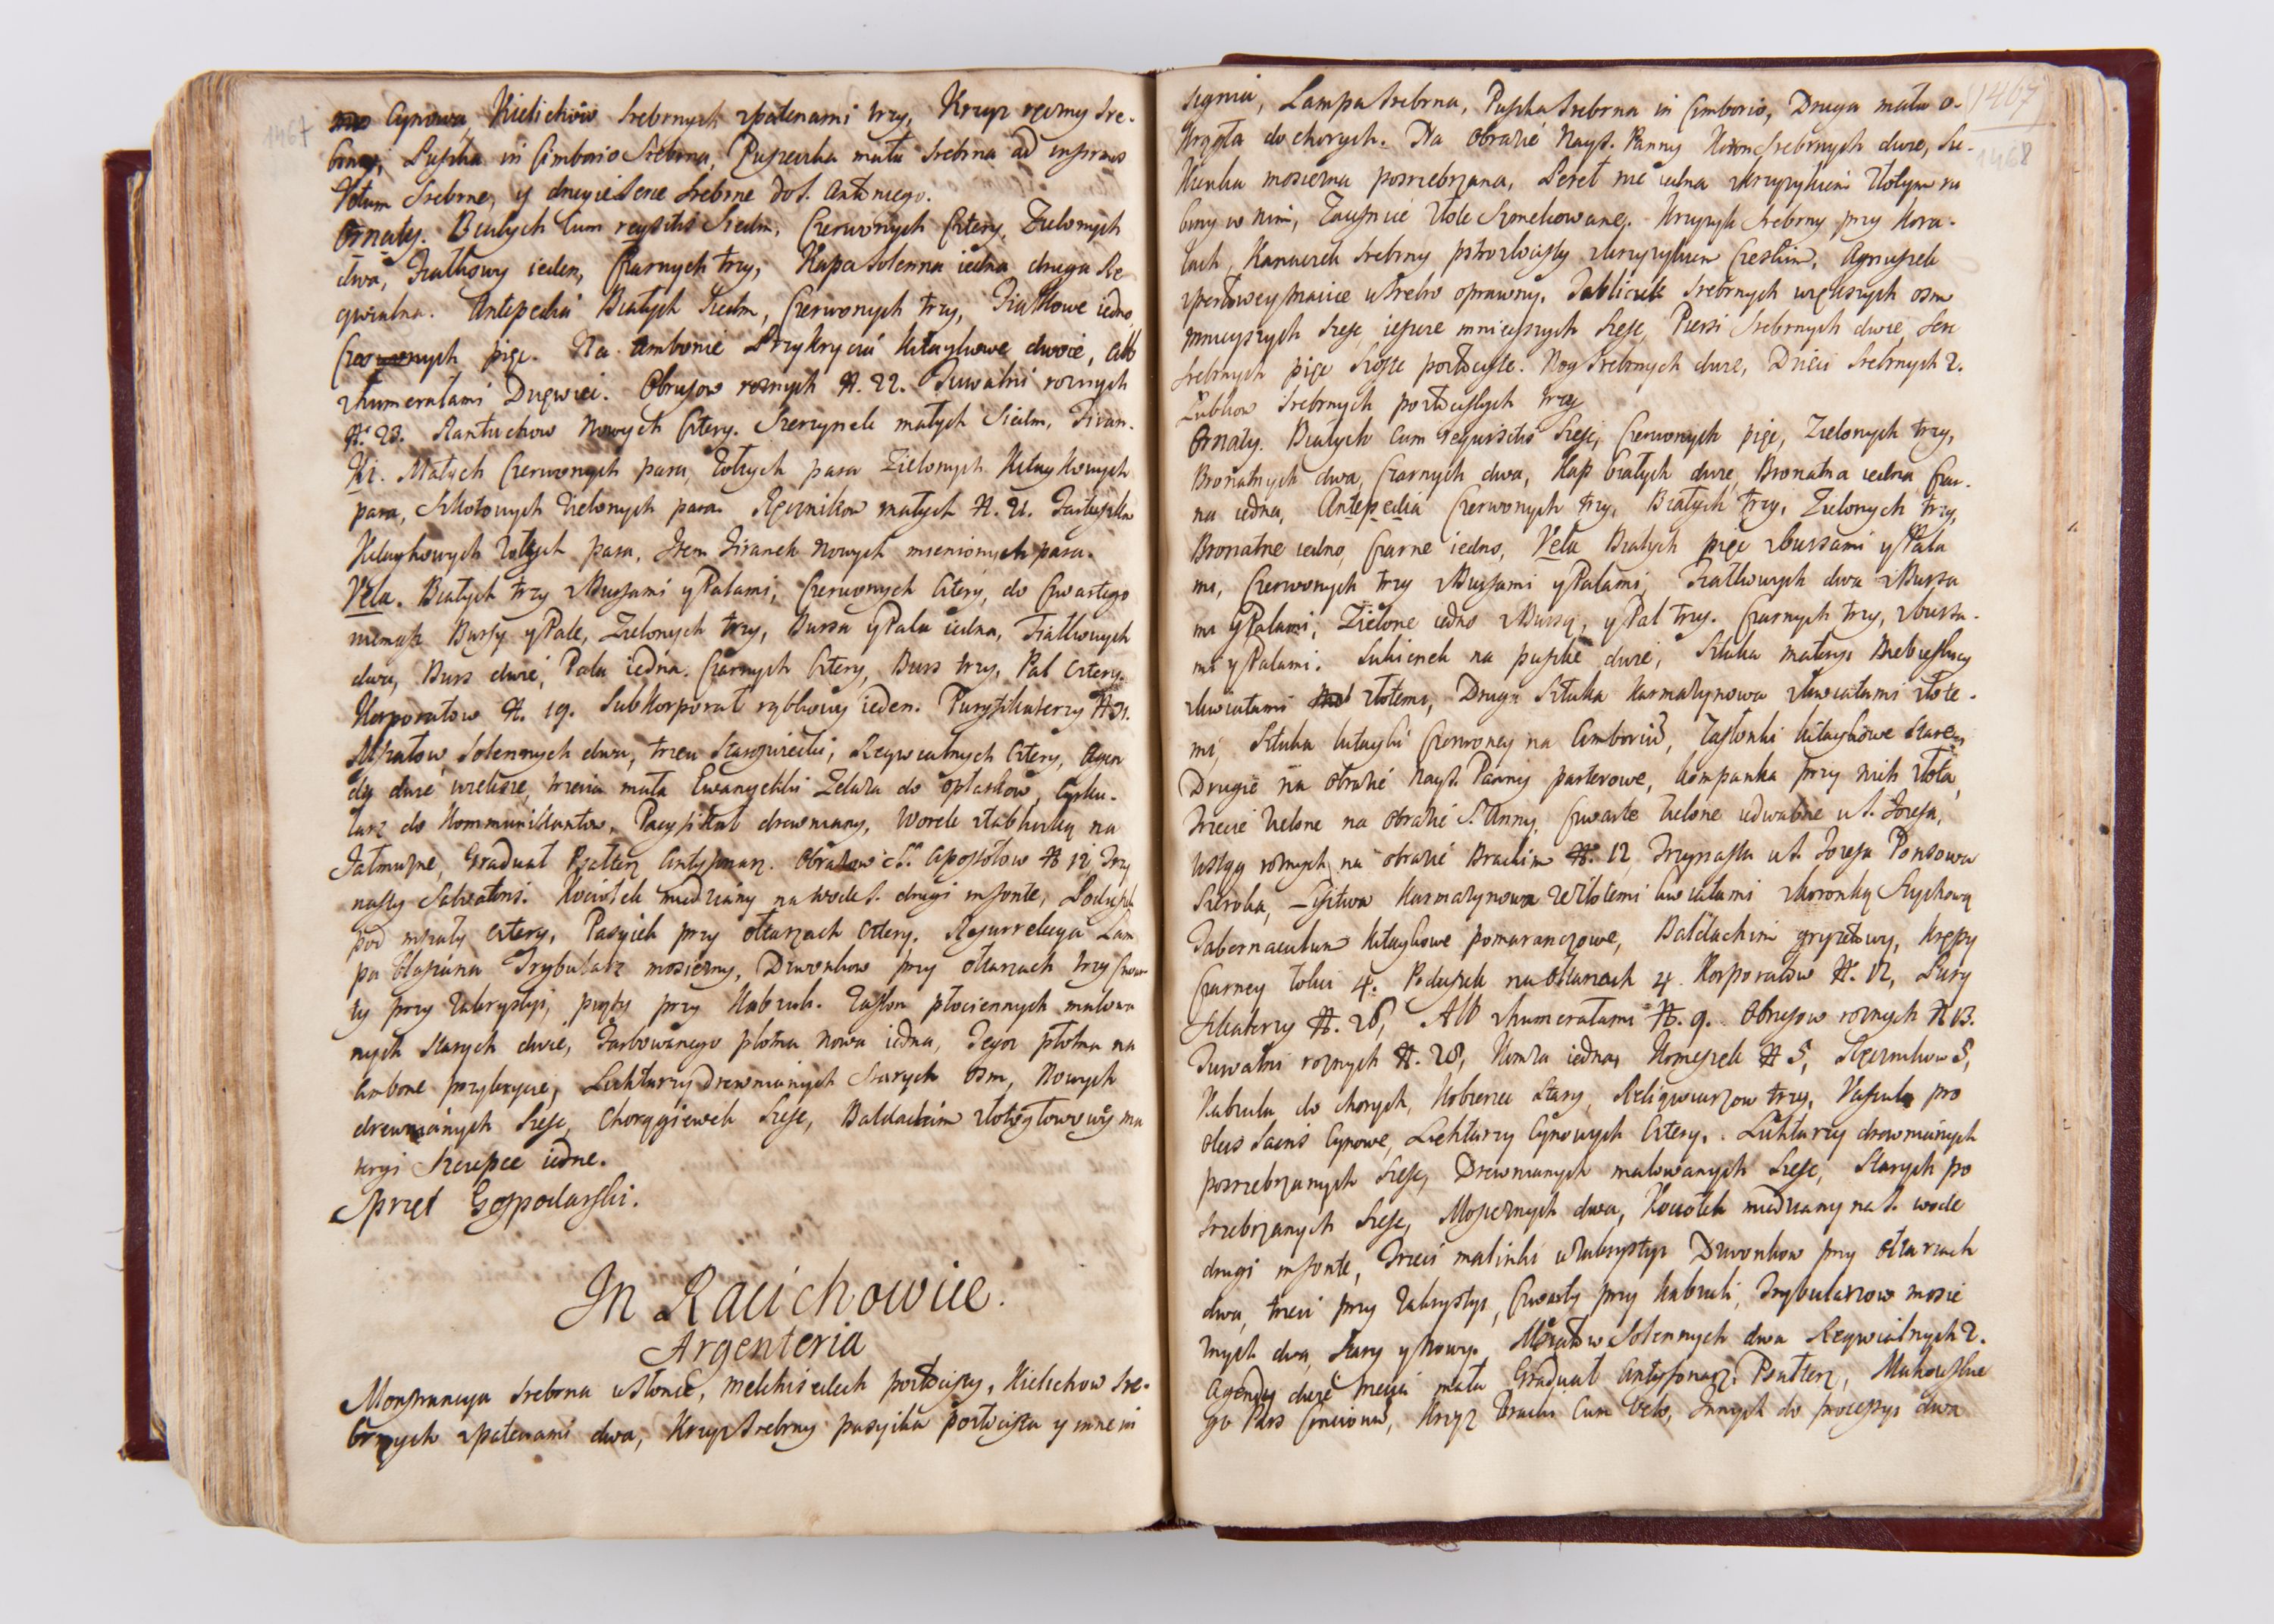 1467
Cynowa, Kielichow Srebrnych zpatenami trzy, Krzyz ręczny Sre-
brny, Puszka in Cimborio Srebrna, Puszeczka mała srebrna ad infirmos
Votum Srebrne, y drugie Serce Srebrne do S. Antoniego.
Ornaty. Białych Cum requisitis Siedm, Czerwonych Cztery, Zielonych
dwa, Fiałkowy ieden, Czarnych trzy, Kapa Solenna iedna druga Re
qwialna. Antepedia Białych Siedm, Czerwonych trzy, Fiałkowe iedno,
pięc. Na Ambonie Przykrycia kitaykowe dwoie, Alb
zhumerałami Obrusow roznych N. 22. Tuwalni roznych
N. 23. Rantuchow Nowych Cztery. małych Siedm, Firan-
ki. Małych Czerwonych para, żołtych para Zielonych Kitaykowych
para, Zielonych para. Ręcznikow małych N. 21.
Kitaykowych para, Item Firanek Nowych mienionych para.
Vela. Białych trzy zBursami yPalami, Czerwonych Cztery, do Czwartego
niemasz Bursy yPale, Zielonych trzy, Bursa yPala iedna, Fiałkowych
dwa, Burs dwie, Pala iedna. Czarnych Cztery, Burs trzy, Pal cztery.
Korporałow N. 19. SubKorporał rąbkowy ieden. Puryfikaterzy N 31.
Mszałow Solennych dwa, trzeci Staroswiecki, Reqwialnych Cztery, Agen
dy dwie wielkie, trzecia mała Ewanyeliki Zelaza do opłatkow, Cyrku-
larz do Kommunikantow, Pacyfikał drewniany, Worek zTabliczką na
Jałmuznę, Graduał Psałterz Antyfonarz. Obrazow SS. Apostołow N 12, Trzy
nasty Salvatoris. Kociołek miedziany na wodę S. drugi infonte,
pod mszały cztery, Pasyiek przy ołtarzach cztery. Resurrekcya Lam
pa Trybularz mosiezny, Dzwonkow przy ołtarzach trzy Czwar
ty przy Zakrystyi, piąty przy Zasłon płociennych malowa
nych Starych dwie, Farbowanego płotna Nowa iedna, Tegoz płotna na
Ambonę przykrycie, Lichtarzy Drewnianych Starych Osm, Nowych
drewnianych Szesc, Chorągiewek Szesc, Baldachim złotogłowowy ma
teryi Szczupce iedne.
Sprzęt Gospodarski.
In Raciechowice.
Argenteria
Monstrancya Srebrna wSłonce, Melchisedech pozłocisty, Kielichow Sre-
brnych zpatenami dwa, Krzyz Srebrny pasyika pozłocista y inne in
1467
1468
signia, Lampa Srebrna, Puszka Srebrna in Cimborio, Druga mała o-
krągła do chorych. Na Obrazie Nays. Panny Koron Srebrnych dwie, Su-
kienka mosiezna posrzebrzana, zkrzyzykiem złotym ru
biny w nim, Zausnice złote Szmelcowane. Krzyzyk Srebrny przy Kora-
lach, Kanaczek Srebrny zkrzyzykiem Czeskim, Agnuszek
zperłowey macice wSrebro oprawny. Tabliczek Srebrnych większych osm
mnieyszych Szesc, ieszcze mnieyszych Szesc, Piersi Srebrnych dwie, Serc
Srebrnych pięc Szoste pozłociste. Nog Srebrnych dwie, Dzieci Srebrnych 2.
Ząbkow Srebrnych pozłocistych trzy
Ornaty. Białych Cum requisitis Szesc, Czerwonych pięc, Zielonych trzy,
Bronatnych dwa, Czarnych dwa, Kap białych dwie, Bronatna iedna Czar-
na iedna, Antepedia Czerwonych trzy, Białych trzy, Zielonych trzy,
Bronatne iedno, Czarne iedno, Vela Białych pięc zbursami yPala
mi, Czerwonych trzy zBursami yPalami, Fiałkowych dwa zBursa
mi yPalami, Zielone iedno zBursą, yPal trzy. Czarnych trzy, zbursa-
mi yPalami. Sukienek na puszkę dwie, Sztuka materyi
zkwiatami złotemi, Druga Sztuka Karmazynowa zkwiatami złote-
mi, Sztuka kitayki Czerwoney na Cimborium, Zasłonki kitaykowe Stare
Drugie na obrazie Nays. Panny parterowe, kompanka przy nich złota,
Trzecie Zielone na obrazie S. Anny, Czwarte Zielone iedwabne u S. Jozefa,
Wstąg roznych na obrazie Brackim N. 12, Trzynasta u S. Jozefa Ponsowa
Szeroka, Listwa Karmazynowa zezłotemi kwiatami zkoronką Szychową
Tabernaculum kitaykowe pomaranczowe, Baldachim gryzetowy, Krepy
Czarney łokci 4. Poduszek na Ołtarzach 4. Korporałow N. 12, Pury
fikaterzy N. 26, Alb zhumerałami N. 9. Obrusow roznych N 13.
Tuwalni roznych N. 28, Komza iedna, Komeszek N 5, Ręcznikow 5,
do chorych, Kobierzec Stary, Reliqwiarzow trzy, Vascula pro
oleis Sacris Cynowe, Lichtarzy Cynowych Cztery. Lichtarzy drewnianych
posrzebrzanych Szesc, Drewnianych malowanych Szesc, Starych po
srzebrzanych Szesc, Mosieznych dwa, Kociołek miedziany na S. wodę
drugi infonte, Trzeci malinki wZakrystyi Dzwonkow przy ołtarzach
dwa, trzeci przy Zakrystyi, Czwarty przy Trybularzow mosię
znych dwa, Stary yNowy. Mszałow Solennych dwa Reqwialnych 2.
Agendy dwie trzecia mała Graduał Antyfonarz, Psałterz,
go Pars Concionum, Krzyz Bracki Cum Velo, Innych do processyi dwa